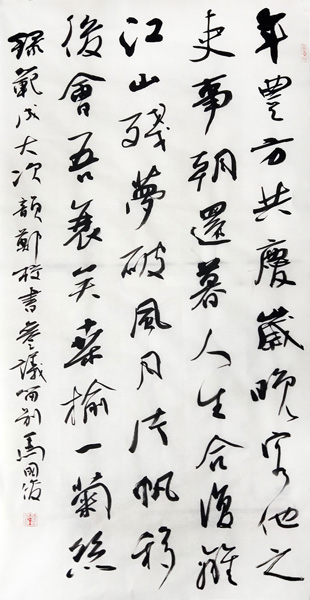 年豐方共慶歲晚客他之
吏事朝還暮人生合復離
江山殘夢破風月片帆移
後會吾衰矣桑榆一繭絲
錄範成大次韻鄭校書參議留別馬國俊